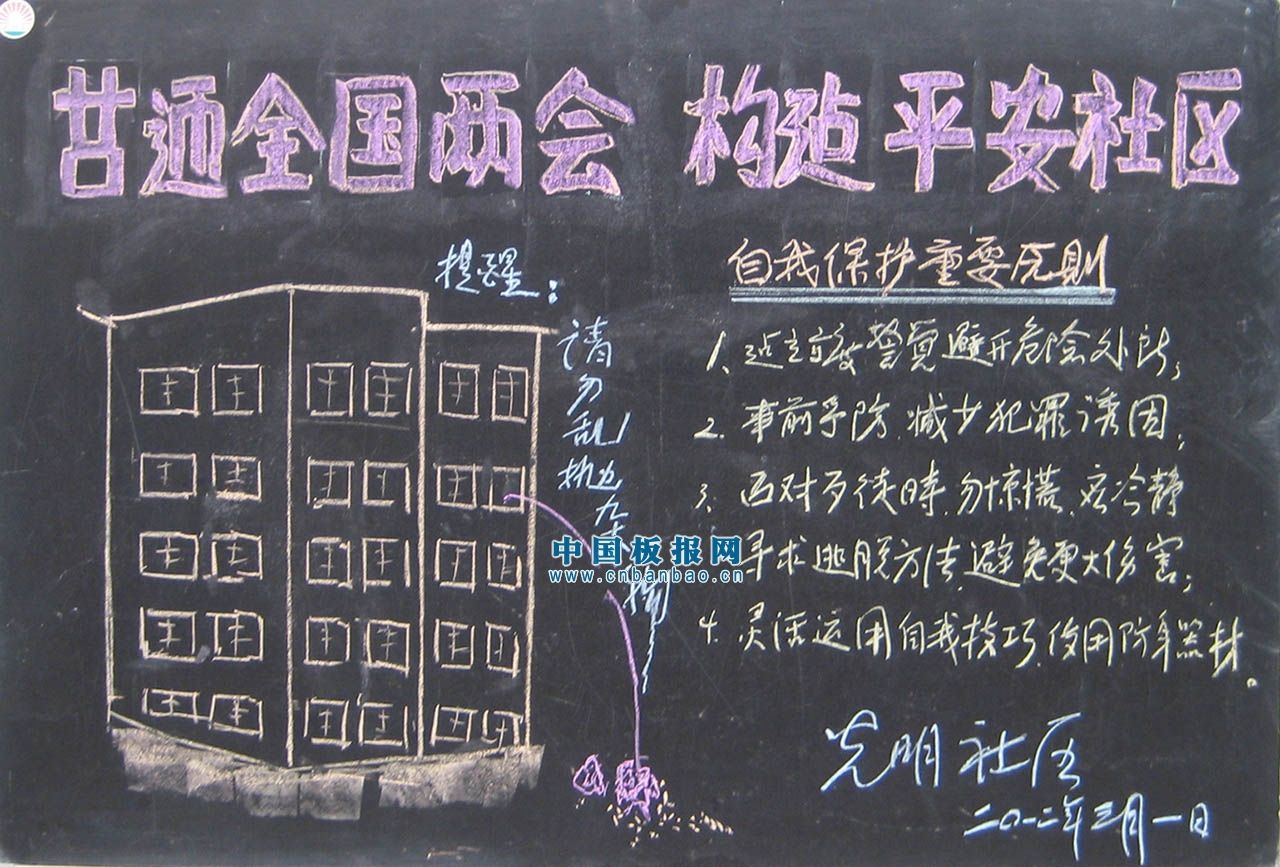 全国两会 构造平安社区
提醒：
请勿乱抛
中国板报网
www.cnbanbao.cn
自我保护重要原则
1、建立高度警觉避开危险处所；
2、事前予防、减少犯罪诱因；
3、面对歹徒时、勿惊慌、应冷静
寻求逃脱方法、避免更大伤害；
4、灵活运用自我技巧、使用防身器材。
光明社区
二〇一二年三月一日